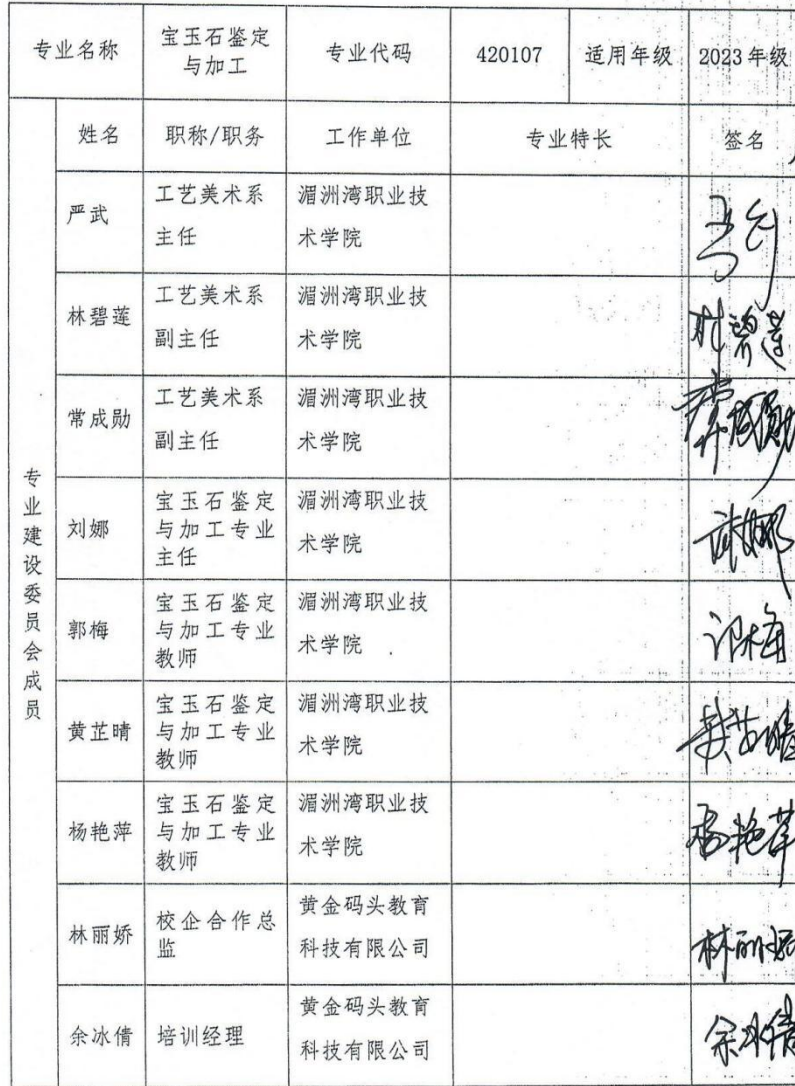 专业名称
宝玉石鉴定
与加工
专业代码
420107
适用年级
2023年级
专业建设委员会成员
姓名
职称/职务
工作单位
专业特长
签名
严武
工艺美术系
主任
湄洲湾职业技
术学院
林碧莲
工艺美术系
副主任
湄洲湾职业技
术学院
林碧莲
常成勋
工艺美术系
副主任
湄洲湾职业技
术学院
常成勋
刘娜
宝玉石鉴定
与加工专业
主任
湄洲湾职业技
术学院
刘娜
郭梅
宝玉石鉴定
与加工专业
教师
湄洲湾职业技
术学院
郭梅
黄芷晴
宝玉石鉴定
与加工专业
教师
湄洲湾职业技
术学院
黄芷晴
杨艳萍
宝玉石鉴定
与加工专业
教师
湄洲湾职业技
术学院
杨艳萍
林丽娇
校企合作总
监
黄金码头教育
科技有限公司
林丽娇
余冰倩
培训经理
黄金码头教育
科技有限公司
余冰倩